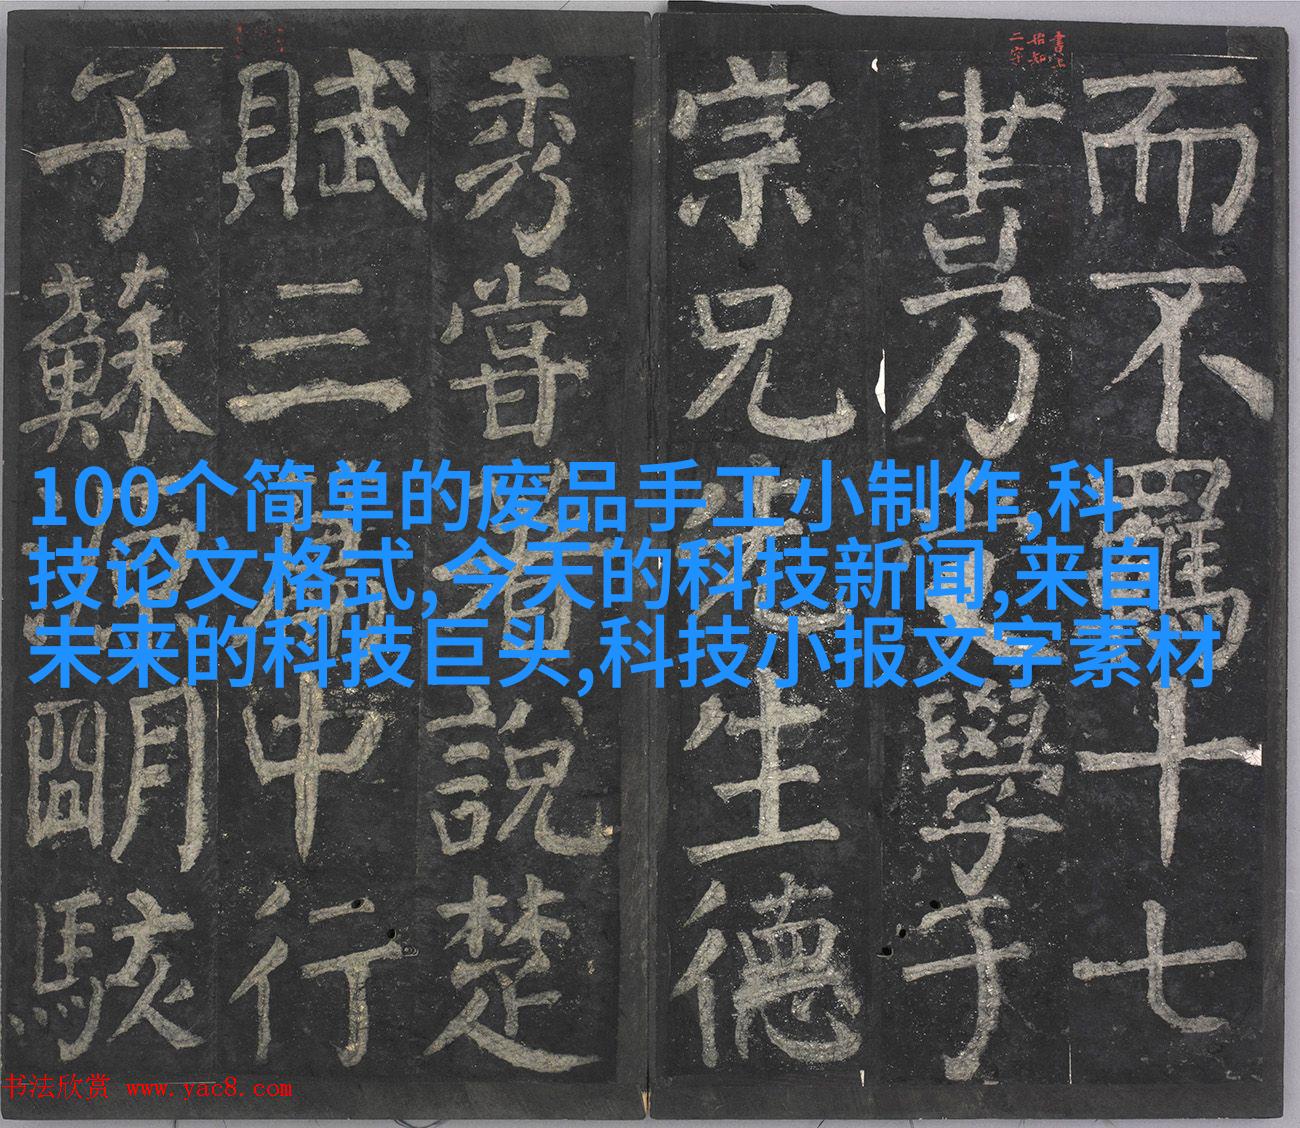 100个简单的废品手工小制作,科
技论文格式,今天的科技新闻,来自
未来的科技巨头,科技小报文字素材
而不羈十七
書乃學于
宗兄先生德
秀嘗著說楚
賦三篇中行
子蘇源明駭
書上
始知
二字
书法欣赏 www.yac8.com